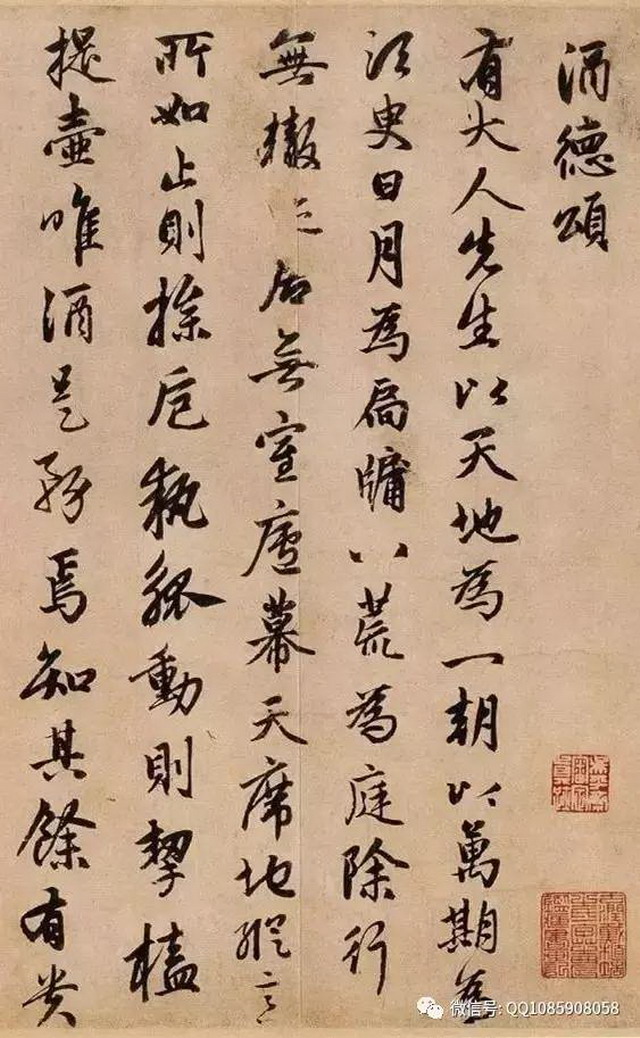 酒德頌
有大人先生以天地為一朝以萬期為
須臾日月為扃牖八荒為庭除行
無轍居無室廬幕天席地縱意
所如止則操卮執觚動則挈榼
提壺唯酒是務焉知其餘有貴
微信号: QQ1085908058